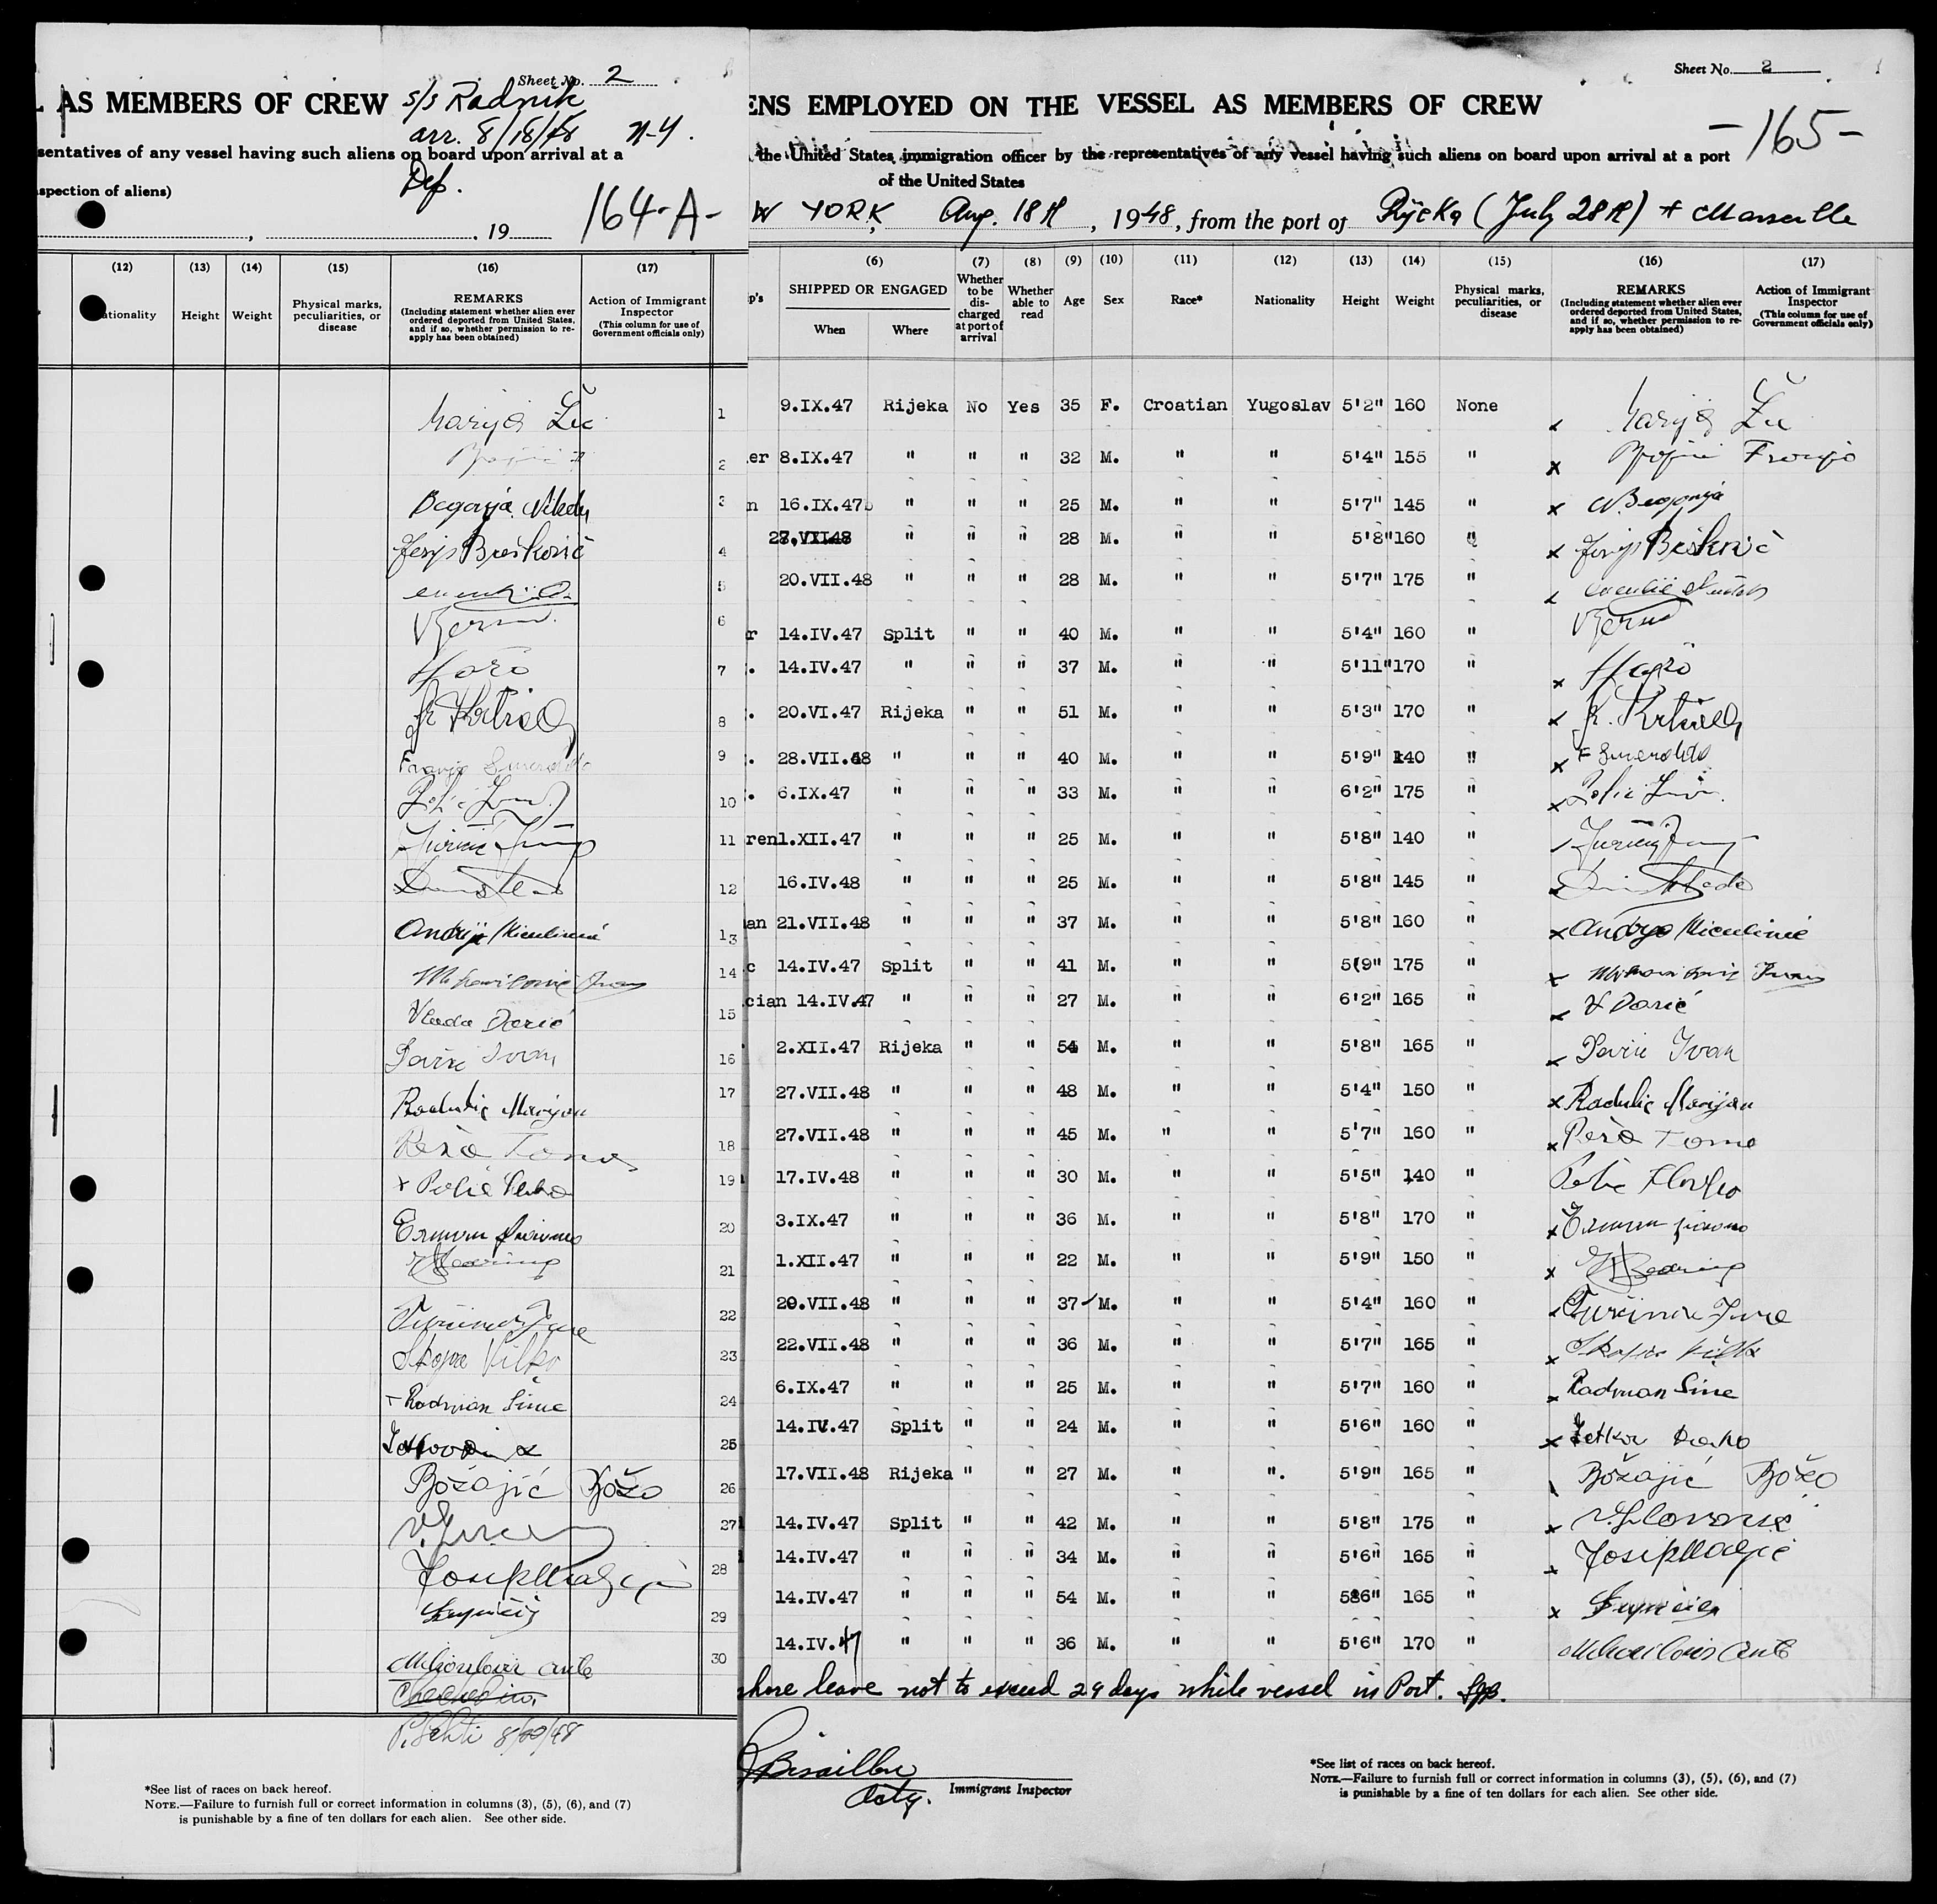 Sheet No. 2
L AS MEMBERS OF CREW s/s Radnik
arr. 8/18/48 N-Y.
sentatives of any vessel having such aliens on board upon arrival at a
Dep.
spection of aliens)
, 19 164-A-
(12) (13) (14) (15) (16) (17)
ationality Height Weight Physical marks, peculiarities, or disease REMARKS (Including statement whether alien ever ordered deported from United States, and if so, whether permission to reapply has been obtained) Action of Immigrant Inspector (This column for use of Government officials only)
Marija Žic
Begonja Nikola
Josip Brešković
Haro
Franjo Smeraldo
Andrija Miculinić
Vlado Darić
Pavic Ivan
Radulic Marijan
Peša Tome
x Polić
Skopac Vilko
Radman Sime
Božajić Božo
Josip Maljić
Ante
8/20/48
*See list of races on back hereof.
NOTE.—Failure to furnish full or correct information in columns (3), (5), (6), and (7)
is punishable by a fine of ten dollars for each alien. See other side.
Sheet No. 2
ENS EMPLOYED ON THE VESSEL AS MEMBERS OF CREW
-165-
the United States immigration officer by the representatives of any vessel having such aliens on board upon arrival at a port
of the United States
W YORK, Aug. 18th, 1948, from the port of Rijeka (July 28th) + Marseille
(6) (7) (8) (9) (10) (11) (12) (13) (14) (15) (16) (17)
p's SHIPPED OR ENGAGED When Where Whether to be discharged at port of arrival Whether able to read Age Sex Race* Nationality Height Weight Physical marks, peculiarities, or disease REMARKS (Including statement whether alien ever ordered deported from United States, and if so, whether permission to reapply has been obtained) Action of Immigrant Inspector (This column for use of Government officials only)
1 9.IX.47 Rijeka No Yes 35 F. Croatian Yugoslav 5'2" 160 None Marija Žic
2 er 8.IX.47 " " " 32 M. " " 5'4" 155 " x Franjo
3 n 16.IX.47 " " " 25 M. " " 5'7" 145 " x N. Begonja
4 27.VII48 " " " 28 M. " " 5'8" 160 " x Josip Brešković
5 20.VII.48 " " " 28 M. " " 5'7" 175 "
6 r 14.IV.47 Split " " 40 M. " " 5'4" 160 "
7 . 14.IV.47 " " " 37 M. " " 5'11" 170 " x Haro
8 . 20.VI.47 Rijeka " " 51 M. " " 5'3" 170 "
9 . 28.VII.48 " " " 40 M. " " 5'9" 140 " x F Smeraldo
10 . 6.IX.47 " " " 33 M. " " 6'2" 175 " x
11 ren1.XII.47 " " " 25 M. " " 5'8" 140 "
12 16.IV.48 " " " 25 M. " " 5'8" 145 "
13 an 21.VII.48 " " " 37 M. " " 5'8" 160 " x Andrija Miculinić
14 c 14.IV.47 Split " " 41 M. " " 5(9" 175 " x
15 cian 14.IV.47 " " " 27 M. " " 6'2" 165 " x V Darić
16 2.XII.47 Rijeka " " 54 M. " " 5'8" 165 " Pavic Ivan
17 27.VII.48 " " " 48 M. " " 5'4" 150 " x Radulic Marijan
18 27.VII.48 " " " 45 M. " " 5'7" 160 " x Peša Tome
19 17.IV.48 " " " 30 M. " " 5'5" 140 "
20 3.IX.47 " " " 36 M. " " 5'8" 170 " x
21 1.XII.47 " " " 22 M. " " 5'9" 150 " x
22 20.VII.48 " " " 37 M. " " 5'4" 160 " Jure
23 22.VII.48 " " " 36 M. " " 5'7" 165 " x
24 6.IX.47 " " " 25 M. " " 5'7" 160 " x Radman Sime
25 14.IV.47 Split " " 24 M. " " 5'6" 160 " x
26 17.VII.48 Rijeka " " 27 M. " ". 5'9" 165 " Božajić Božo
27 14.IV.47 Split " " 42 M. " " 5'8" 175 " x
28 14.IV.47 " " " 34 M. " " 5'6" 165 " x Josip Maljić
29 14.IV.47 " " " 54 M. " " 586" 165 " x
30 14.IV.47 " " " 36 M. " " 5'6" 170 " Ante
hore leave not to exceed 29 days while vessel in Port.
Immigrant Inspector
*See list of races on back hereof.
NOTE.—Failure to furnish full or correct information in columns (3), (5), (6), and (7)
is punishable by a fine of ten dollars for each alien. See other side.